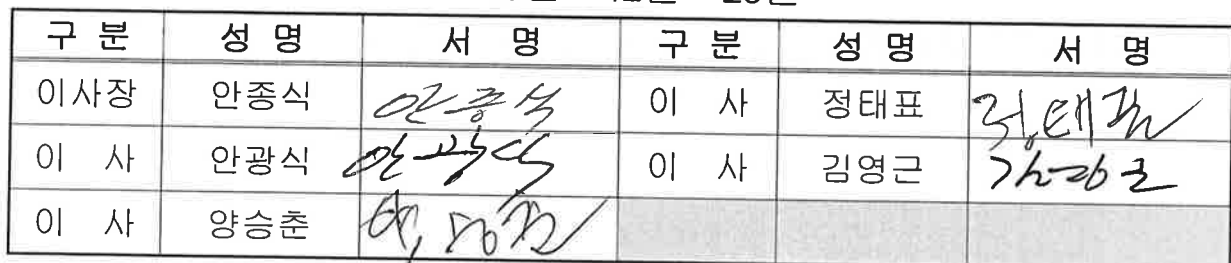 구 분 성 명 서 명 구 분 성 명 서 명
이사장 안종식 안종식 이 사 정태표 정태표
이 사 안광식 안광식 이 사 김영근 김영근
이 사 양승춘 양승춘